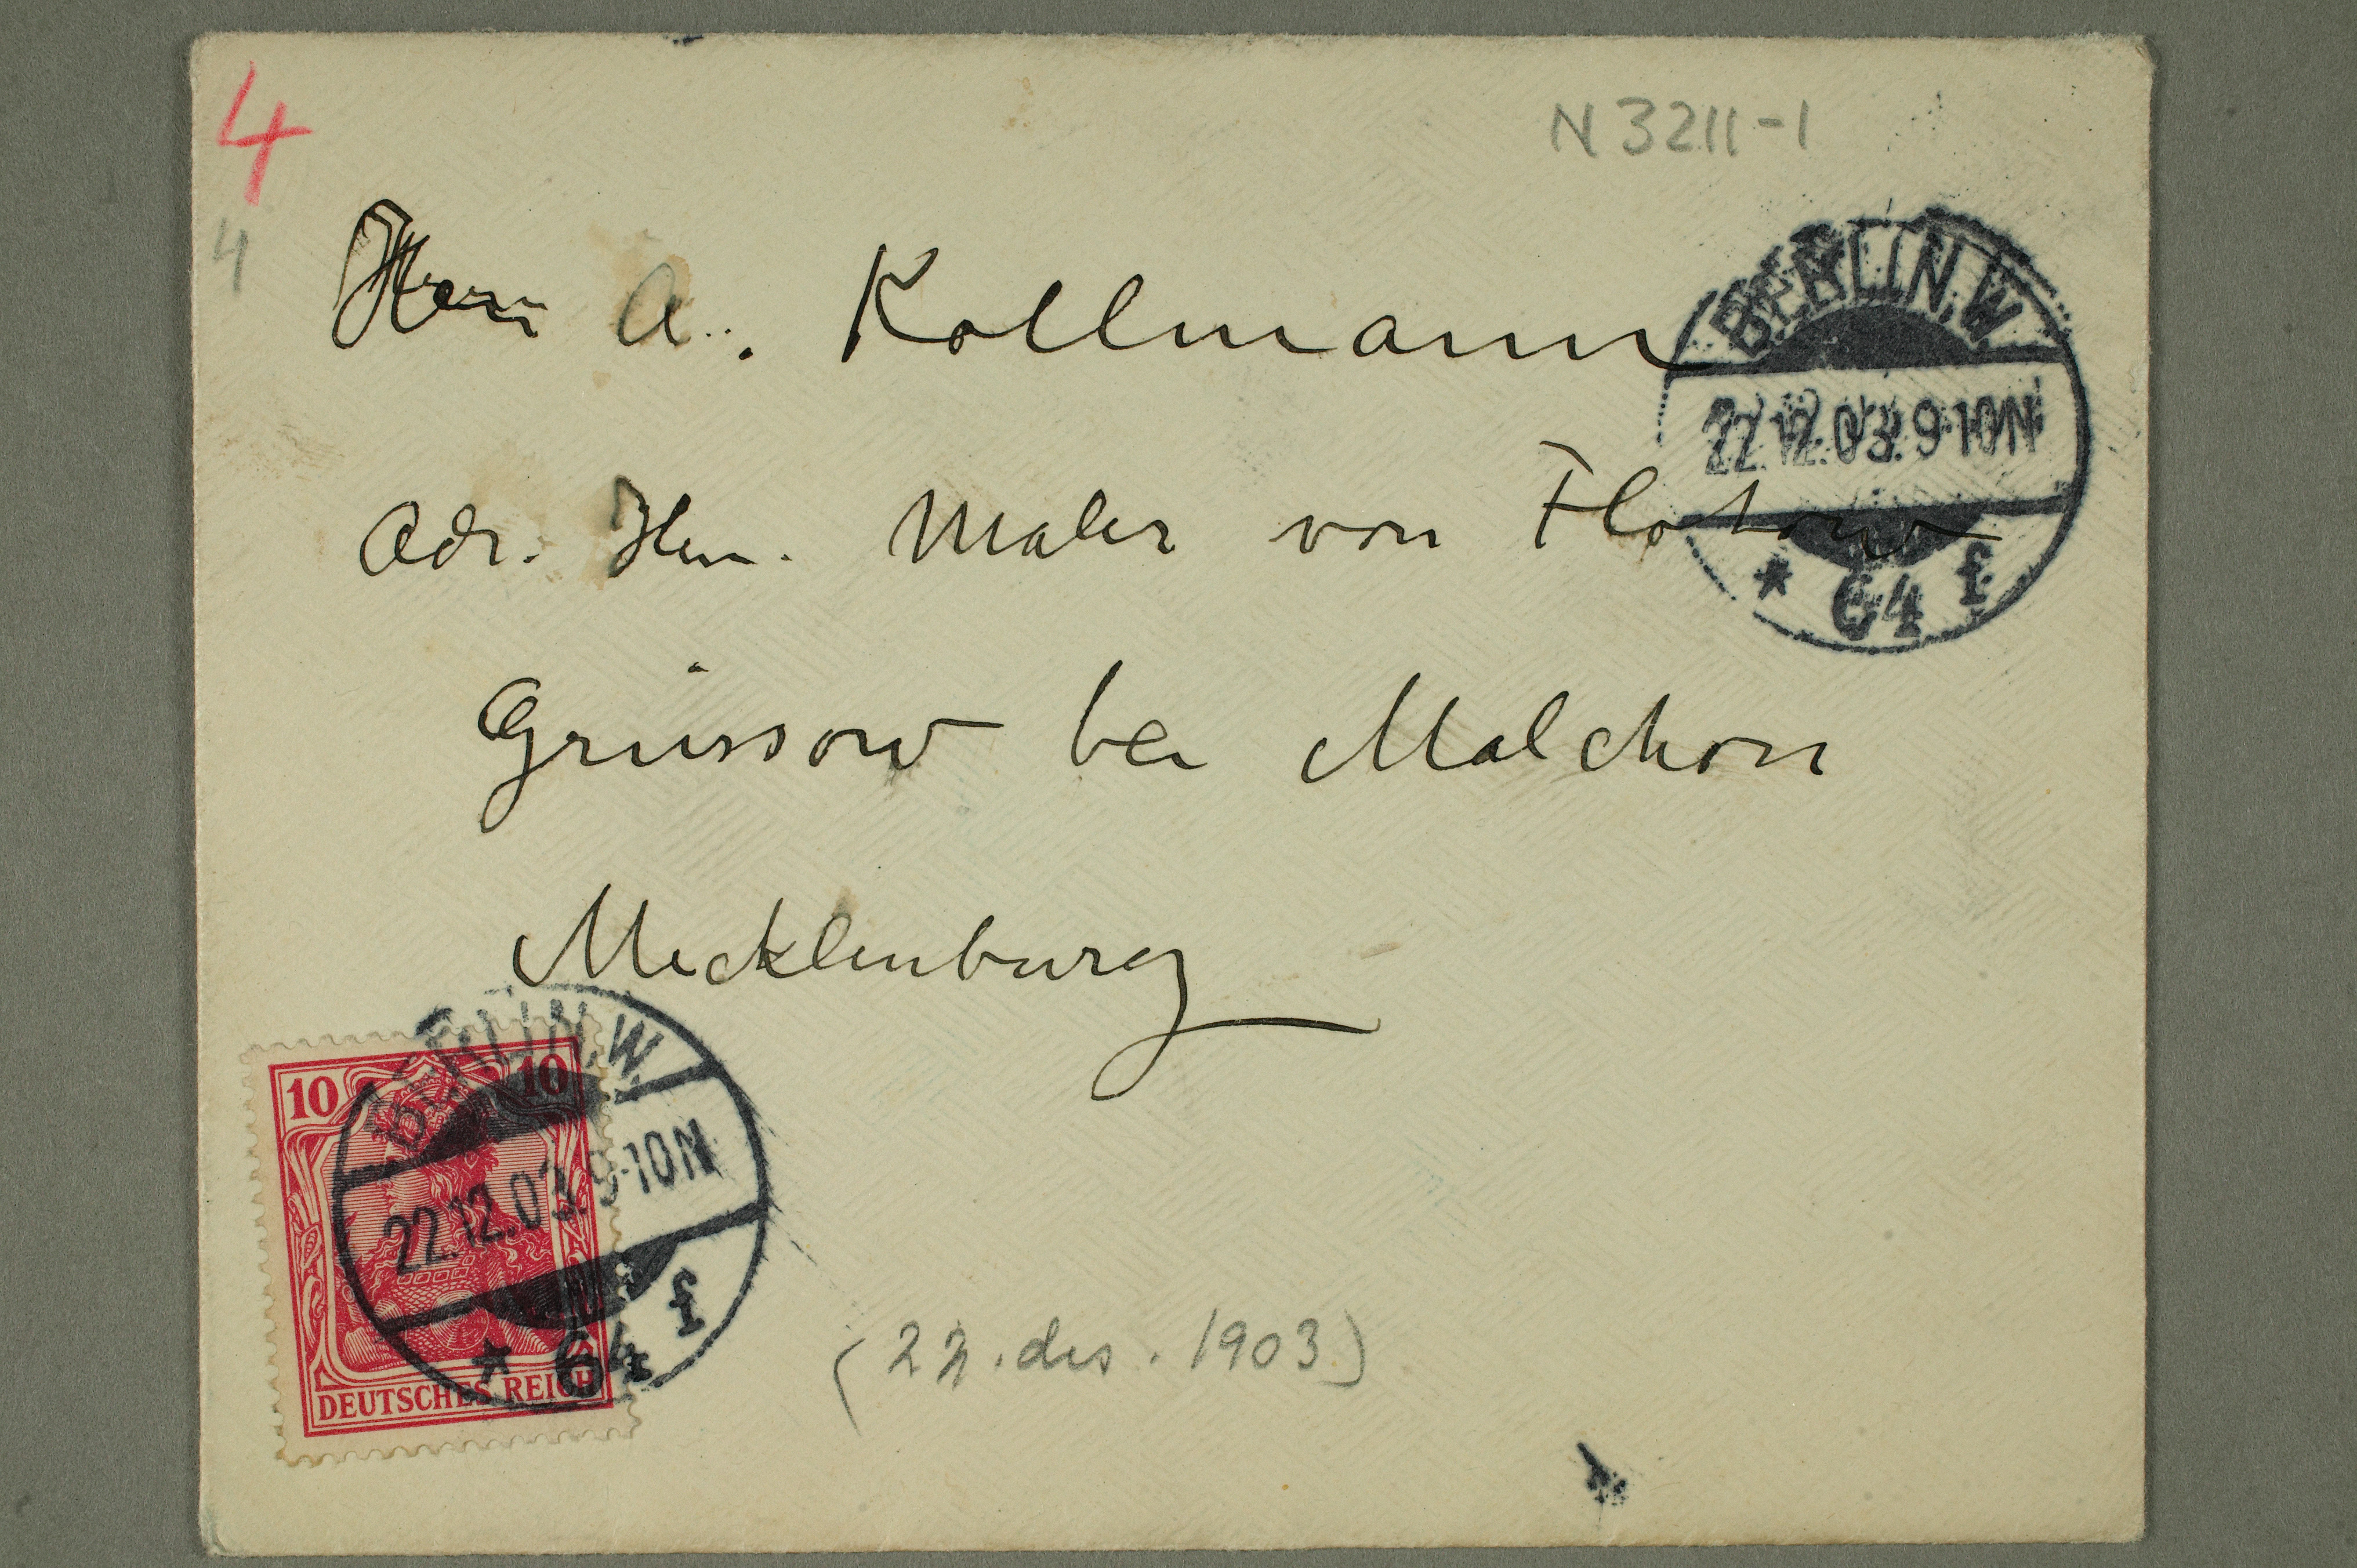 4
N 3211-1
4
Herrn A. Kollmann
BERLIN. W.
22.12.03. 9-10N
* 64 f
Adr. Hrn. Maler von Flotow
Grüssow bei Malchow
Mecklenburg
BERLIN. W.
22.12.03. 9-10N
* 64 f
10 10
DEUTSCHES REICH
(22. des. 1903)